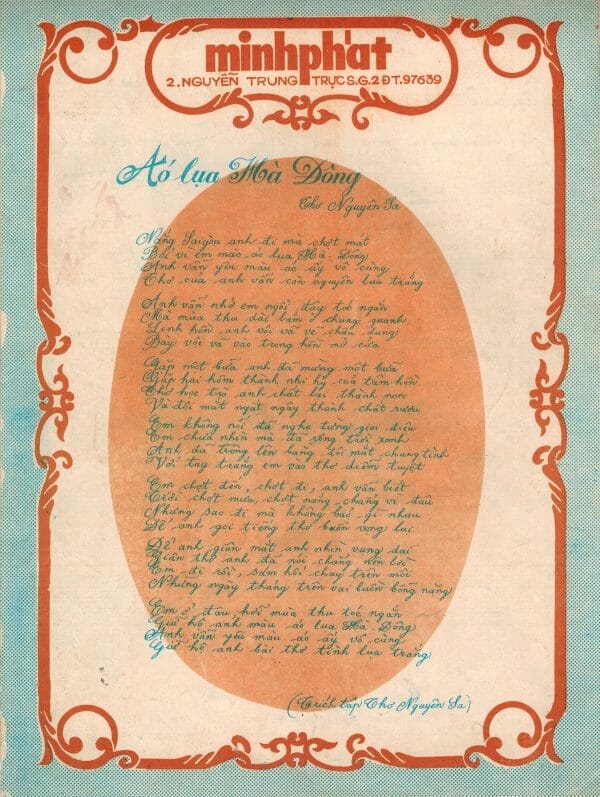 minhphát
2.NGUYỄN TRUNG TRỰC S.G.2 ĐT.97639
Áo lụa Hà Đông
Thơ Nguyên Sa
Nắng Saigòn anh đi mà chợt mát
Bởi vì em mặc áo lụa Hà-Đông
Anh vẫn yêu màu áo ấy vô cùng
Thơ của anh vẫn còn nguyên lụa trắng
Anh vẫn nhớ em ngồi đây tóc ngắn
Mà mùa thu dài lắm ở chung quanh
Linh hồn anh vội vã vẽ chân dung
Bay vội vã vào trong hồn mở cửa
Gặp một bữa anh đã mừng một bữa
Gặp hai hôm thành nhị hỷ của tâm hồn
Thơ học trò anh chất lại thành non
Và đôi mắt ngất ngây thành chất rượu
Em không nói đã nghe từng giai điệu
Em chưa nhìn mà đã rộng trời xanh
Anh đã trông lên bằng đôi mắt chung tình
Với tay trắng em vào thơ diễm tuyệt
Em chợt đến, chợt đi, anh vẫn biết
Trời chợt mưa, chợt nắng, chẳng vì đâu
Nhưng sao đi mà không bảo gì nhau
Để anh gọi tiếng thơ buồn vọng lại
Để anh giận mắt anh nhìn vụng dại
Giận thơ anh đã nói chẳng nên lời
Em đi rồi, sám hối chạy trên môi
Những ngày tháng trên vai buồn bỗng nặng
Em ở đâu, hỡi mùa thu tóc ngắn
Giữ hộ anh màu áo lụa Hà-Đông
Anh vẫn yêu màu áo ấy vô cùng
Giữ hộ anh bài thơ tình lụa trắng
(Trích tập Thơ Nguyên Sa)